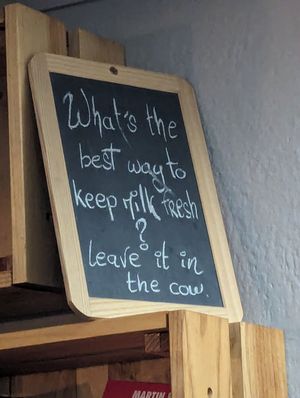 What's the
best way to
keep milk fresh
?
leave it in
the cow.
MARTIN